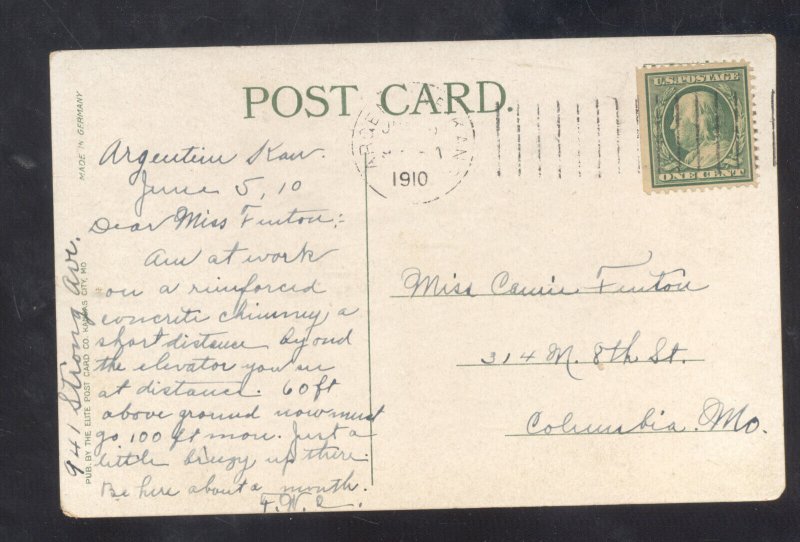 POST CARD.
MADE IN GERMANY
U.S. POSTAGE
ONE CENT
1910
Argentine Kan.
June 5, 10
Dear Miss Fenton:
Am at work
on a reinforced
concrete chimney a
short distance beyond
the elevator you see
at distance. 60 ft
above ground now must
go 100 ft more. Just a
little breezy up there.
Be here about a month.
941 Strong Ave.
PUB. BY THE ELITE POST CARD CO. KANSAS CITY, MO
Miss Carrie Fenton
314 N. 8th St.
Columbia. Mo.